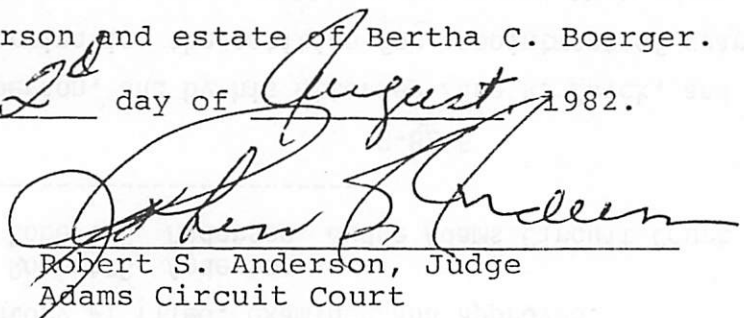 erson and estate of Bertha C. Boerger.
2d day of August, 1982.
Robert S. Anderson, Judge
Adams Circuit Court